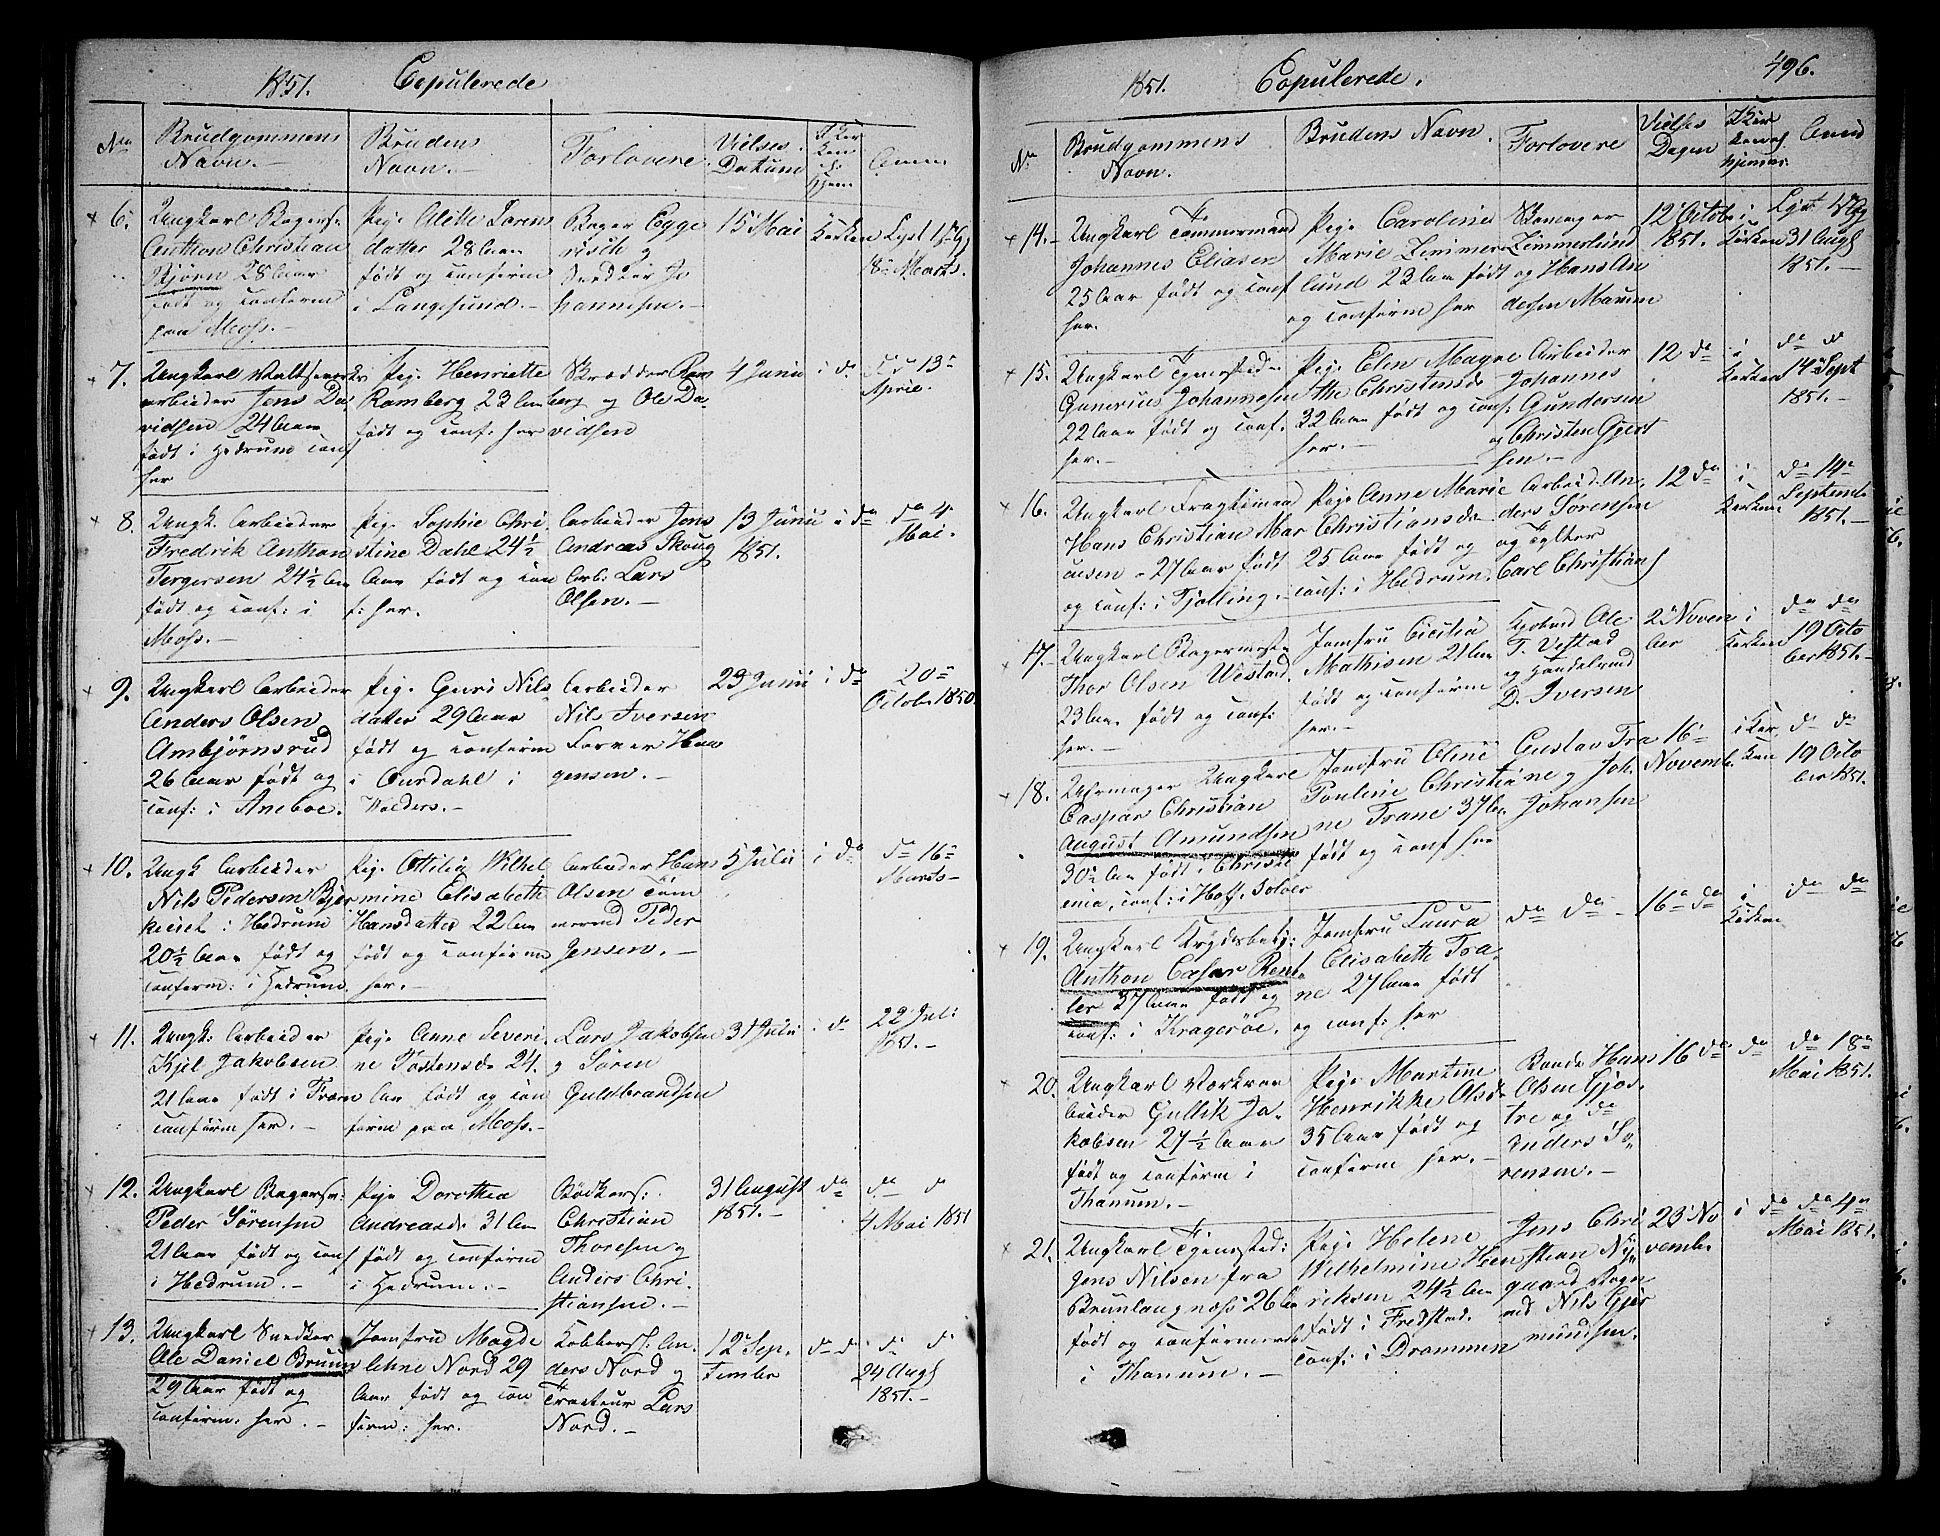 1851. Copulerede
No
Brudgommens
Navn.
Brudens
Navn.
Forlovere.
Vielses
Datum
Kir
ken
Hjem
Anm
6.
Ungkarl Bagers.
Anthon Christian
Bjørn 28 Aar
født og confirm
paa Moss.
Pige Alethe Soren
datter 28 Aar
født og confirm
i Langesund.
Bager Egge
og
Snedker Jo
hannesen.
15 Mai
Kirken
Lyst 1ste G
18 Marts.
7.
Ungkarl
arbeider Jens Da
vidsen 24 Aar
født i Hedrum conf
her
Pige Henriette
Ramberg 23 Aar
født og conf: her
Skrædder Ram
berg og Ole Da
vidsen
4 Junii
i do
do 13
April.
8.
Ungk. Arbeider
Fredrik Anthon
Tergersen 24½ Aar
født og conf: i
Moss.
Pige Sophie Chri
stine Dahl 24½
Aar født og con
f: her.
Arbeider Jens
Andreas Skoug
Arb: Lars
Olsen.
13 Junii
1851.
i do
do 4
Mai.
9.
Ungkarl Arbeider
Anders Olsen
Ambjørnsrud
26 Aar født og
conf: i Aneboe.
Pige Guri Nils
datter 29 Aar
født og confirm
i Aurdahl i
Valders.
Arbeider
Nils Iversen
Farver Haa
gensen.
29 Junii
i do
20
Octob 1850
10.
Ungk Arbeider
Nils Pedersen Bjer
keset i Hedrum
20½ Aar født og
conferm: i Hedrum
Pige Ottilia Wilhel
mine Elisabeth
Hansdatter 22 Aar
født og confirm
her.
Arbeider Hans
Olsen Tøm
mermd Peder
Jensen.
5 Julii
i do
do 16
Marts
11.
Ungk. Arbeider
Kjel Jakobsen
21 Aar født i Fron
confirm her.
Pige Anne Severi
ne Tostensd 24.
Aar født og con
firm paa Moss.
Lars Jakobsen
og Søren
Guldbrandsen
31 Julii
i do
22 Juli
1851.
12.
Ungkarl Bagersv:
Peder Sørensen
21 Aar født og conf
i Hedrum.
Pige Dorothea
Andreasd 31 Aar
født og confirm
i Hedrum.
Bødkers:
Christian
Thoresen og
Anders Chri
stiansen.
31 August
1851.
do
do do
4 Mai 1851
13.
Ungkarl Snedker
Ole Daniel Bruun
29 Aar født og
confirm: her.
Jomfru Magde
lehne Nord 29
Aar født og con
firm: her.
Kobbersl: An
ders Nord og
Tracteur Lars
Nord.
12 Sep.
tember
do do
do do
24 Aug
1851.
1851. Copulerede. 496.
No
Brudgommens
Navn.
Brudens Navn.
Forlovere
Vielses
Dagen
Kir
ken el
hjemme
Anm
14.
Ungkarl Tømmermand
Johannes Eliasen
25 Aar født og conf
her.
Pige Caroline
Marie Zimmer
lund 23 Aar født
og confirm her
Skomager
Zimmerlund
og Hans An
dersen
12 Octob
1851.
i
Kirken
Lyst
31 Aug
1851.
15.
Ungkarl Tjenested.
Gunerius Johannesen
22 Aar født og conf.
her.
Pige Elen Magre
the Christensd
32 Aar født og conf:
her.
Arbeider
Johannes
Gundersen
og Christen Gjert
sen.
12 do
i
Kirken
do d
14 Sept
1851.
16.
Ungkarl Fragtmand
Hans Christian Mar
cusen 27 Aar født
og conf: i Tjølling.
Pige Anne Marie
Christiansd
25 Aar født og
conf: i Hedrum.
Arbeid. An
ders Sørensen
og
Carl Christians
12 do
i
Kirken
do 14
Septemb
1851.
17.
Ungkarl Bagermest
Thor Olsen Westad
23 Aar født og conf:
her.
Jomfru Cicilia
Mathisen 21 Aar
født og confirm
her.
Kjøbmd Ole
T. Vestad
og Handelsmd
D. Iversen
2 Novem
ber
i
Kirken
do do
19 Octo
ber 1851.
18.
Uhrmager Ungkarl
Caspar Christian
August Amundsen
30½ Aar født i Christi
ania, conf: i Hoff. Soløer
Jomfru Oline
Pauline Christia
ne Trane 37 Aar
født og conf her
Gustav Tra
ne og Joh.
Johansen
16
Novemb.
i Kir
ken
do do
19 Octo
ber 1851.
19.
Ungkarl
Anthon Cæsar Rent
ler 37 Aar født og
conf: i Kragerøe.
Jomfru Laura
Elisabeth Tra
ne 27 Aar født
og conf: her
do do
16 do
i
Kirken
do do
20.
Ungkarl Værkar
beider Gullik Ja
kobsen 27½ Aar
født og confirm i
Thanum.
Pige Martine
Henrikke Olsd
35 Aar født og
confirm her.
Bonde Hans
Olsen Gjos
tre og do
Anders Sø
rensen.
16 do
do
do 18
Mai 1851.
21.
Ungkarl Tjenested:
Jens Nilsen fra
Brunlaugness 26 Aar
født og confirmered
i Thanum.
Pige Helene
Wilhelmine Hen
riksen 24½ Aar
født i Fredstad.
conf: i Drammen
Jens Chri
stian Ny
gaard Vogn
md Nils Gjer
mundsen.
23 No
vemb.
i do
do 4
Mai 1851.